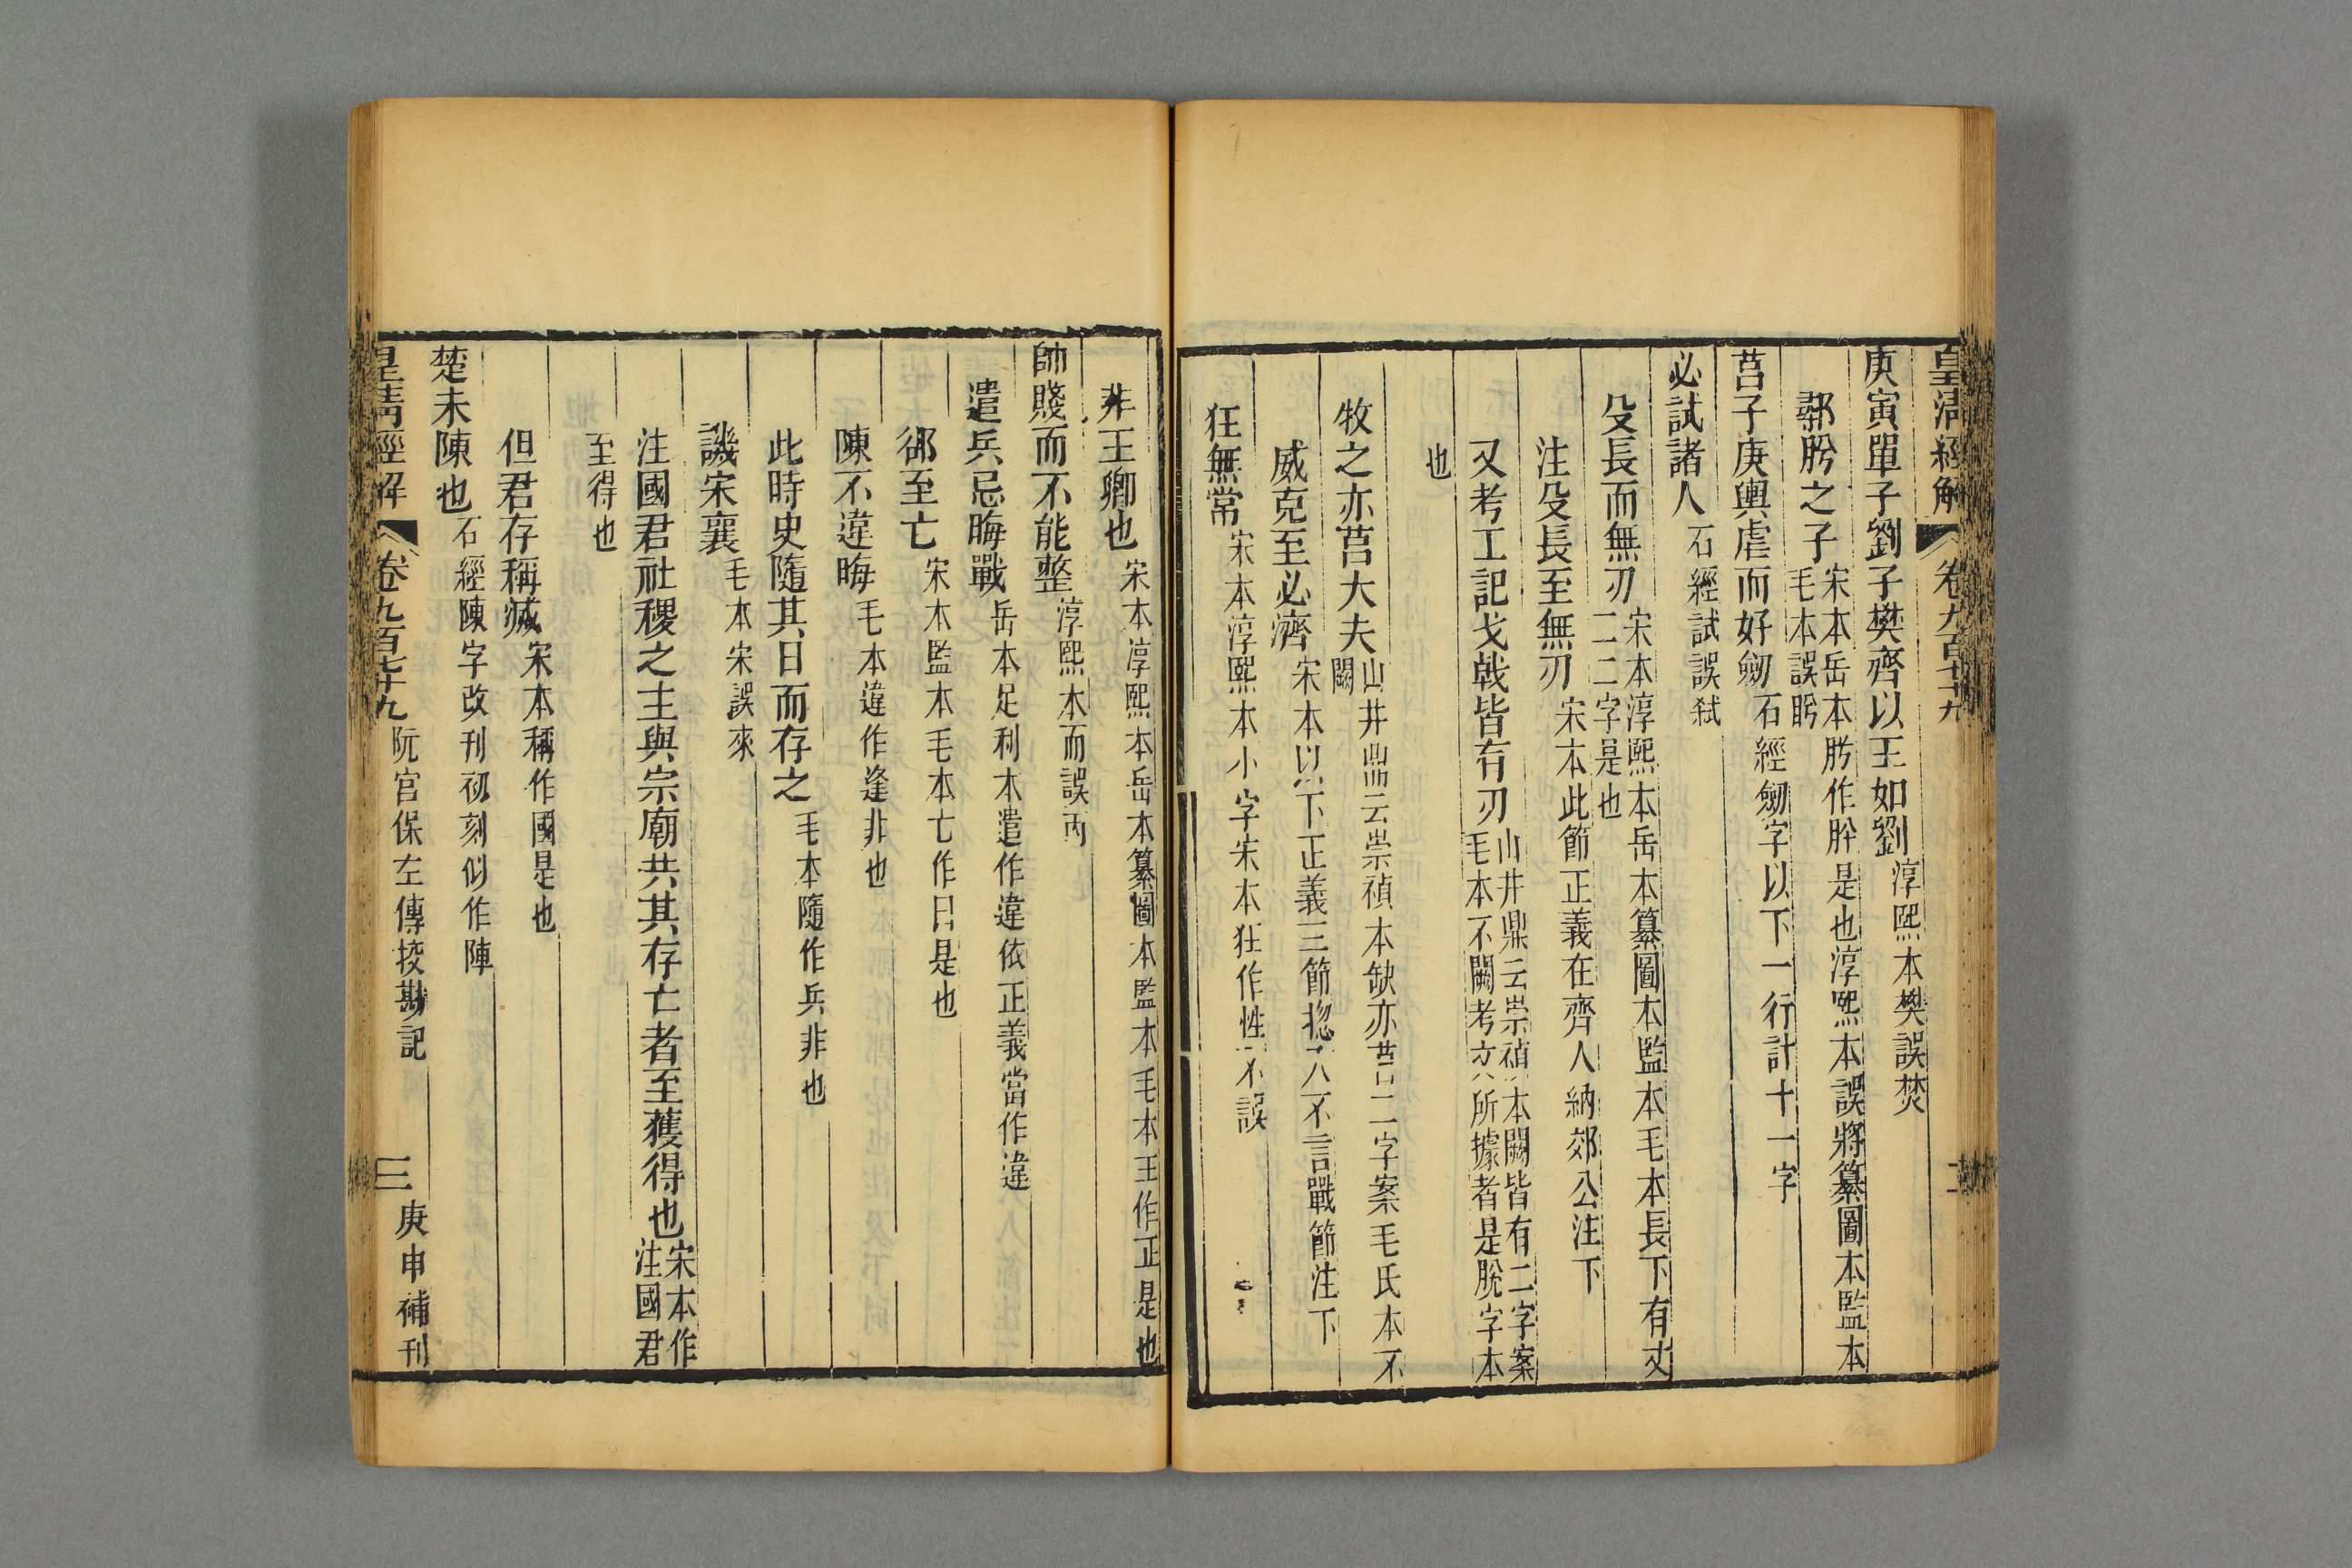 皇清經解 卷九百七十九
庚寅單子劉子樊齊以王如劉 淳熙本樊誤焚
鄩肹之子 宋本岳本肹作肸是也淳熙本誤將纂圖本監本
毛本誤盻
莒子庚輿虐而好劒 石經劒字以下一行計十一字
必試諸人 石經試誤弒
殳長而無刃 宋本淳熙本岳本纂圖本監本毛本長下有丈
二二字是也
注殳長至無刃 宋本此節正義在齊人納郊公注下
又考工記戈戟皆有刃 山井鼎云崇禎本闕皆有二字案
毛本不闕考文所據者是脫字本
也
牧之亦莒大夫 山井鼎云崇禎本缺亦莒二字案毛氏本不
闕
威克至必濟 宋本以下正義三節揔入不言戰節注下
狂無常 宋本淳熙本小字宋本狂作性不誤
非王卿也 宋本淳熙本岳本纂圖本監本毛本王作正是也
帥賤而不能整 淳熙本而誤丙
遣兵忌晦戰 岳本足利本遣作違依正義當作違
鄬至亡 宋本監本毛本亡作日是也
陳不違晦 毛本違作逢非也
此時史隨其日而存之 毛本隨作兵非也
譏宋襄 毛本宋誤來
注國君社稷之主與宗廟共其存亡者至獲得也 宋本作
注國君
至得也
但君存稱滅 宋本稱作國是也
楚未陳也 石經陳字改刊初刻似作陣
皇清經解 卷九百七十九 阮宮保左傳挍勘記 三 庚申補刊